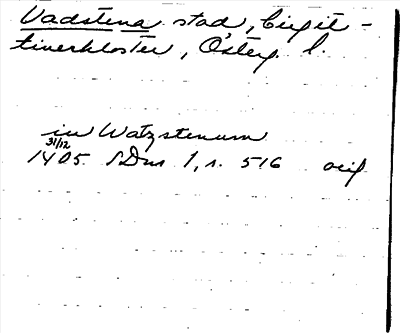 Vadstena stad, Birgit-
tinerkloster, Österg. l.
in Watzstenum
31/12
1405 SDns 1, s. 516 orig